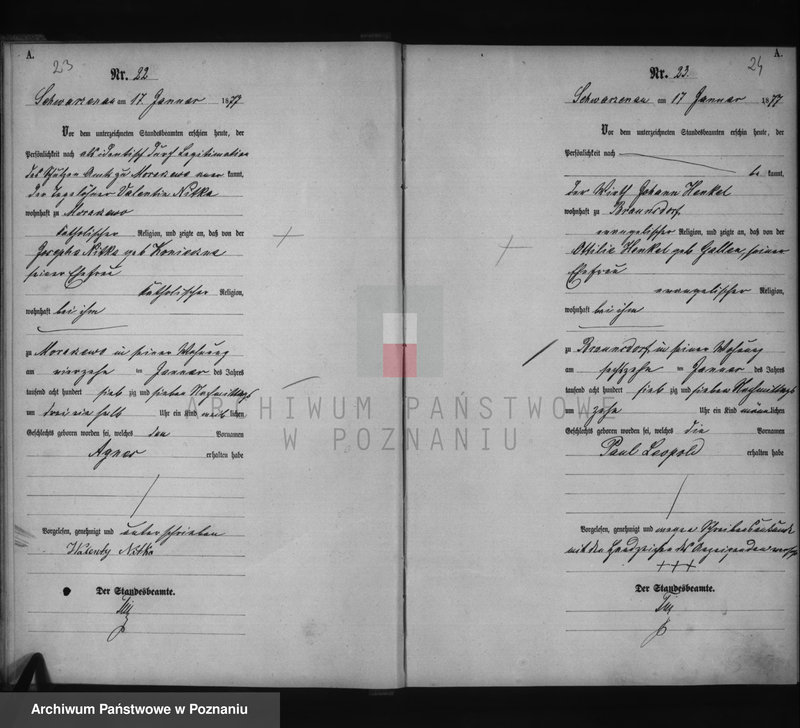 A.
23
Nr. 22
Schwarzenau am 17 Januar 1877
Vor dem unterzeichneten Standesbeamten erschien heute, der
Persönlichkeit nach als identisch durch Legitimation
des Schulzen Amts zu kannt,
der Tagelöhner Valentin Nitka
wohnhaft zu
katholischer Religion, und zeigte an, daß von der
Nitka geb
seiner Ehefrau
katholischer Religion,
wohnhaft bei ihm
zu in seiner Wohnung
am vierzehn ten Januar des Jahres
tausend acht hundert sieb zig und sieben Nachmittags
um drei ein halb Uhr ein Kind weib lichen
Geschlechts geboren worden sei, welches den Vornamen
Agnes erhalten habe
Vorgelesen, genehmigt und unterschrieben
Walenty Nitka
Der Standesbeamte.
A.
24
Nr. 23.
Schwarzenau am 17 Januar 1877
Vor dem unterzeichneten Standesbeamten erschien heute, der
Persönlichkeit nach
be kannt,
der Wirth Johann Henkel
wohnhaft zu Braunsdorf
evangelischer Religion, und zeigte an, daß von der
Ottilie Henkel geb seiner
Ehefrau
evangelischer Religion,
wohnhaft bei ihm
zu Braunsdorf in seiner Wohnung
am sechzehn ten Januar des Jahres
tausend acht hundert sieb zig und sieben Nachmittags
um zehn Uhr ein Kind männlichen
Geschlechts geboren worden sei, welches die Vornamen
Paul Leopold erhalten habe
Vorgelesen, genehmigt und wegen
mit den Handzeichen des Anzeigenden
+++
Der Standesbeamte.
ARCHIWUM PAŃSTWOWE
W POZNANIU
Archiwum Państwowe w Poznaniu